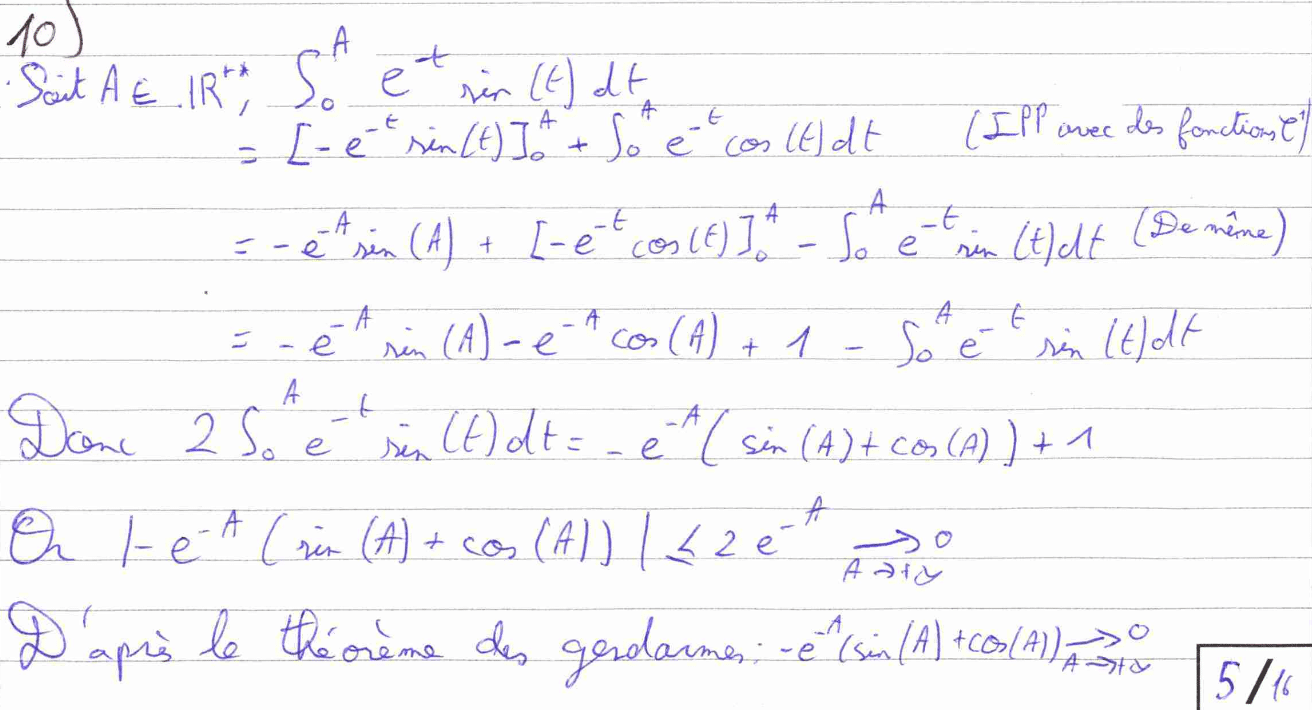 10)
Soit A ∈ ℝ⁺*, ∫₀ᴬ e⁻ᵗ sin(t) dt
= [-e⁻ᵗ sin(t)]₀ᴬ + ∫₀ᴬ e⁻ᵗ cos(t)dt (IPP avec des fonctions C¹)
= -e⁻ᴬ sin(A) + [-e⁻ᵗ cos(t)]₀ᴬ - ∫₀ᴬ e⁻ᵗ sin(t)dt (De même)
= -e⁻ᴬ sin(A) - e⁻ᴬ cos(A) + 1 - ∫₀ᴬ e⁻ᵗ sin(t)dt
Donc 2 ∫₀ᴬ e⁻ᵗ sin(t)dt = -e⁻ᴬ(sin(A)+cos(A)) + 1
Or |-e⁻ᴬ(sin(A) + cos(A))| ≤ 2e⁻ᴬ →(A→+∞) 0
D'après le théorème des gendarmes: -e⁻ᴬ(sin(A)+cos(A)) →(A→+∞) 0
5/16